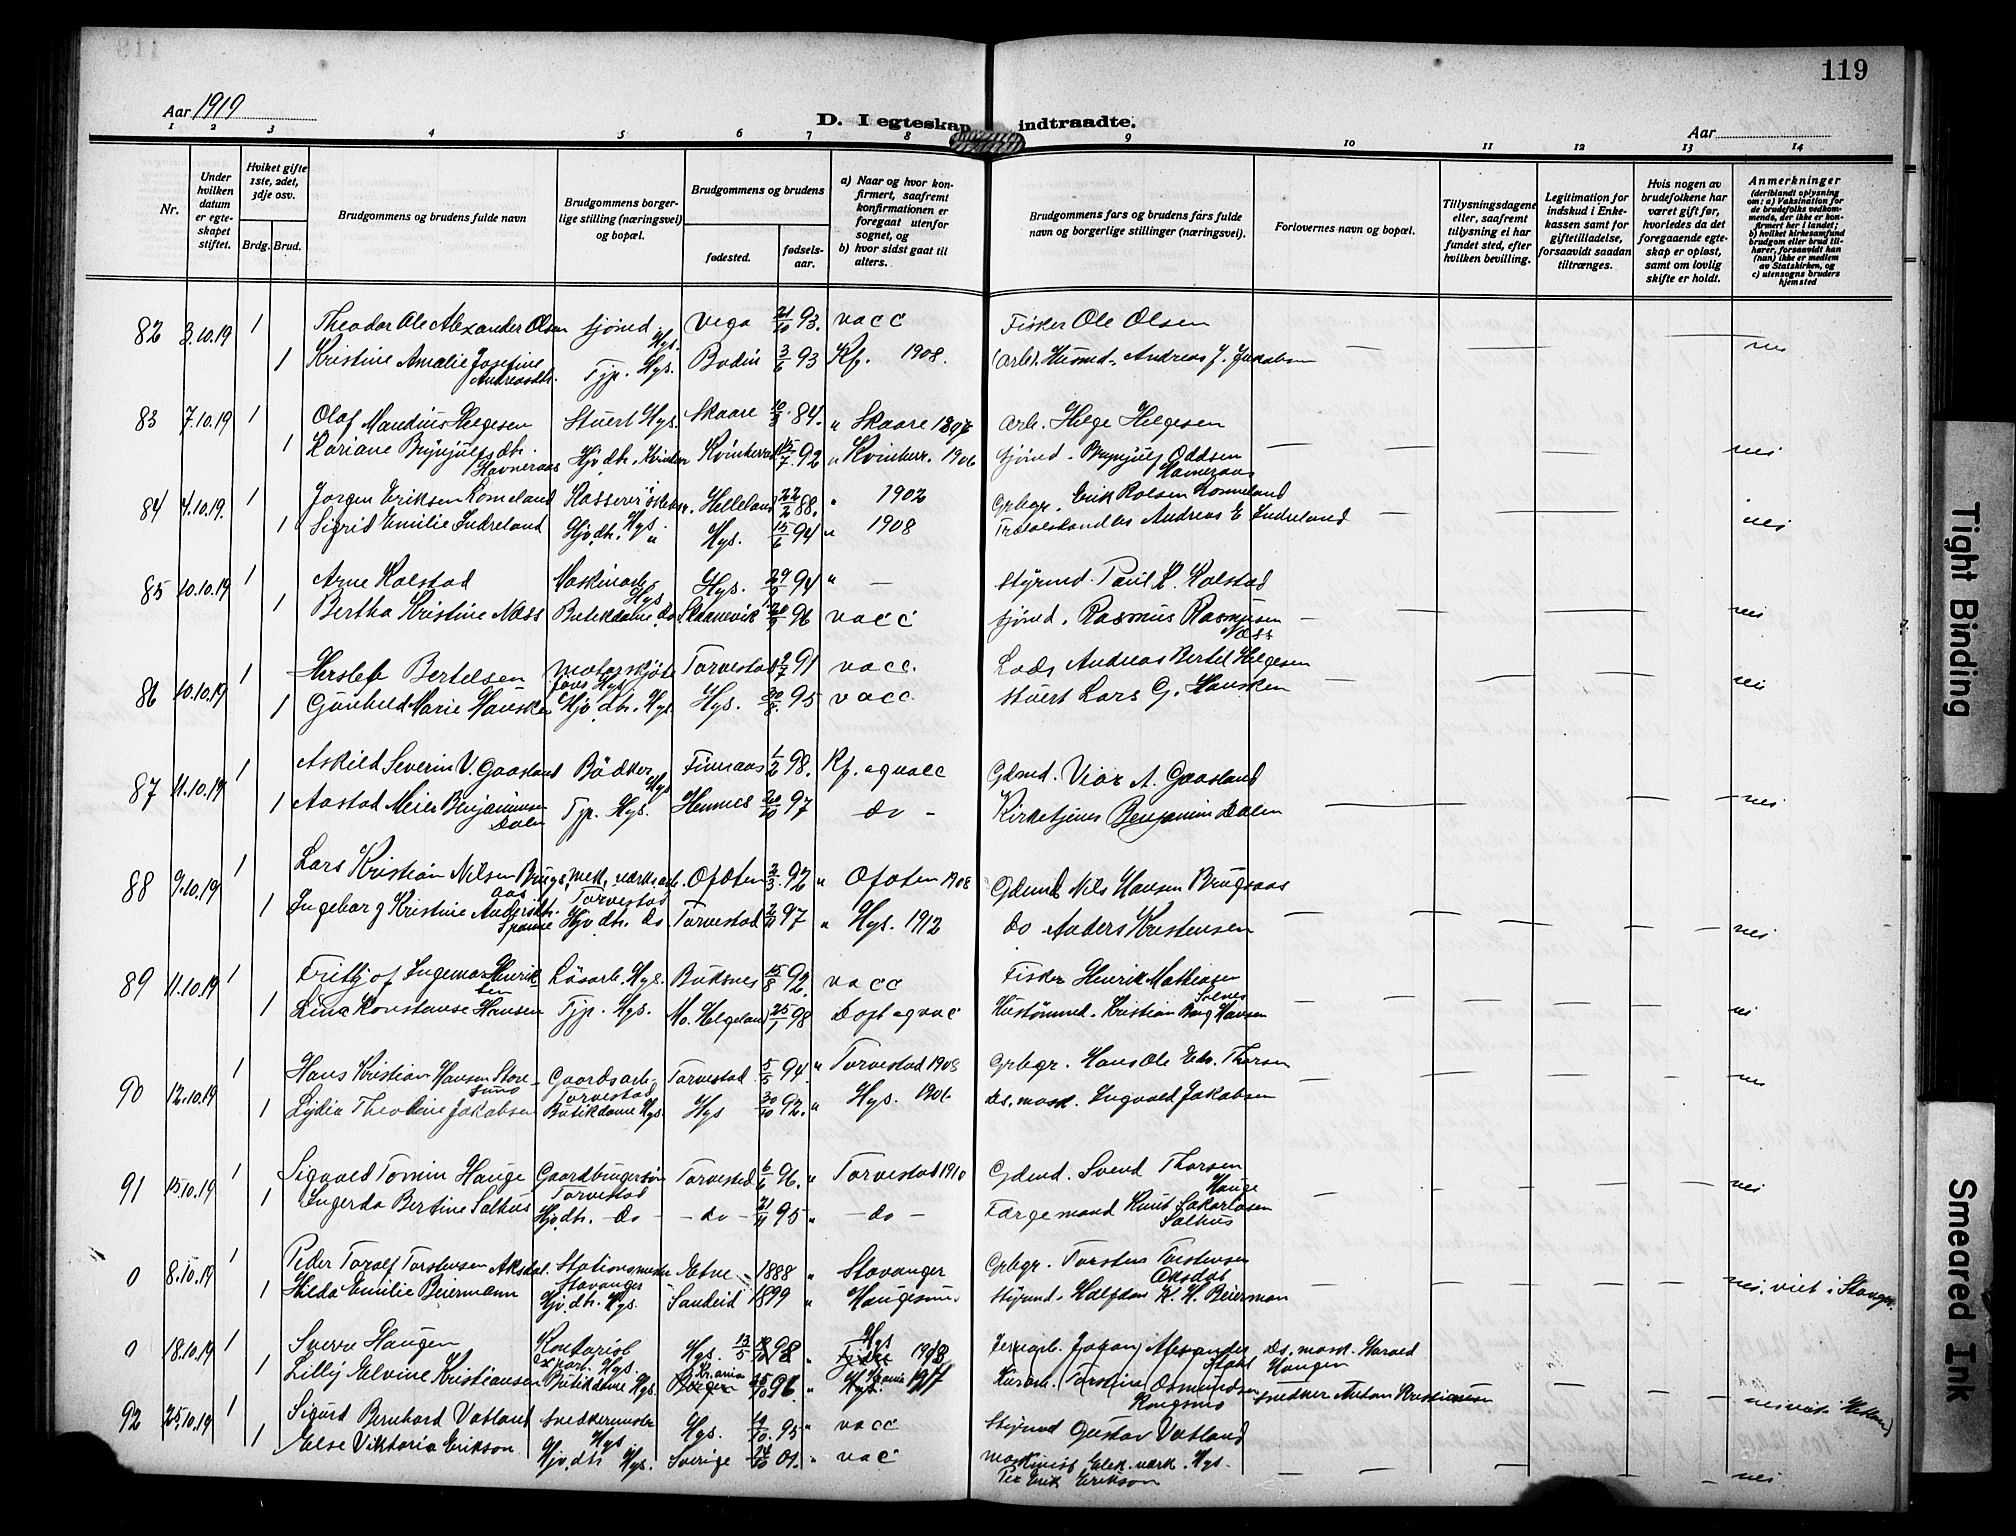 119
Aar 1919
D. I egteskap indtraadte.
Aar
1 2 3 4 5 6 7 8 9 10 11 12 13 14
Nr.
Under hvilken datum er egteskapet stiftet.
Hviket gifte 1ste, 2det, 3dje osv.
Brdg. Brud.
Brudgommens og brudens fulde navn
Brudgommens borgerlige stilling (næringsvei) og bopæl.
Brudgommens og brudens
fødested.
fødselsaar.
a) Naar og hvor konfirmert, saafremt konfirmationen er foregaat utenfor sognet, og
b) hvor sidst gaat til alters.
Brudgommens fars og brudens fars fulde navn og borgerlige stillinger (næringsvei).
Forlovernes navn og bopæl.
Tillysningsdagene eller, saafremt tillysning ei har fundet sted, efter hvilken bevilling.
Legitimation for indskud i Enkekassen samt for giftetilladelse, forsaavidt saadan tiltrænges.
Hvis nogen av brudefolkene har været gift før, hvorledes da det foregaaende egteskap er opløst, samt om lovlig skifte er holdt.
Anmerkninger
(deriblandt oplysning om: a) Vaksination for de brudefolks vedkommende, der ikke er konfirmert her i landet; b) hvilket kirkesamfund brudgom eller brud tilhører, forsaavidt han (hun) ikke er medlem av Statskirken, og c) utensogns bruders hjemsted
82 3.10.19 1 Theodor Ole Alexander Olsen sjømd. Hgs. Vega 21/10 93. vacc Fisker Ole Olsen
1 Kristine Amalie Josefine Andreasdtr. Tjp. Hgs. Bodin 3/6 93 Kf. 1908. Arb. Husmd. Andreas J. Jakobsen — — — — nei
83 7.10.19 1 Olaf Mandius Helgesen Stuert Hgs. Skaare 10/3 84. " Skaare 1897 Arb. Helge Helgesen
1 Kariane Brynjulfsdtr. Havneraas Hjv. dtr. Kvinherr. Kvinherred 15/7 92 " Kvinherr. 1906 sjømd. Brynjulf Oddsen Havneraas — — — — nei
84 4.10.19. 1 Jørgen Eriksen Lomeland Hgs. Helleland 22/2 88. " 1902 Grbgr. Erik Rolsen Lomeland
1 Sigrid Emilie Indreland Hjv. dtr. " Hgs. 15/6 94 " 1908 Trælasthandler Andreas E Indreland — — — — nei
85 10.10.19 1 Arne Kolstad Maskinarb. Hgs. Hgs. 29/6 94 " — Styrmd. Paul K. Kolstad
1 Bertha Kristine Næss Butikdame do. Skaanevik 20/9 96 vacc sjømd. Rasmus Rasmussen Næss — — — — nei
86 10.10.19 1 Hersleb Bertelsen Motorskjøtefører Hgs Torvestad 91 vacc. Lods Andreas Bertel Helgesen
1 Gunhild Marie Hausken Hjv. dtr. Hgs Hgs. 30/8. 95 vacc. Stuert Lars G. Hausken — — — — nei
87 11.10.19 1 Askild Severin V. Gaasland Bødker Hgs Finnaas 1/2 98. Kf. og vacc Gdmd. Vier A. Gaasland
1 Aastad Meier Benjaminsen Dalen Tjp. Hgs. Hemnes 20/10 97 — do — Kirketjener Benjamin Dalen — — — — nei
88 9.10.19 1 Lars Kristian Nilsen Brugsaas mek. værksarb. Torvestad Ofoten 2/3. 92 " Ofoten 1908 Gdmd Nils Hansen Brugsaas
1 Ingeborg Kristine Andersdtr. Spanne Hjv dtr. do Torvestad 97 " Hgs. 1912 do Anders Kristensen — — — — nei
89 11.10.19 1 Fritjof Ingemar Henriksen Løsarb. Hgs. Buksnes 15/8 92. vacc Fisker Henrik Mathiasen
1 Lina Konstanse Hansen Tjp. Hgs. Mo. Helgeland 25/1 98 Døpt og vac Hustømmd. Kristian Berg Hansen — — — — nei
90 12.10.19 1 Hans Kristian Hansen Storesund Gaardsarb. Torvestad Torvestad. 5/5 94. " Torvestad 1908 Grbgr. Hans Ole Edv. Thorsen
1 Lydia Theodine Jakobsen Butikdame Hgs. Hgs 30/10 92. " Hgs. 1906 Ds. mask. Ingvald Jakobsen — — — — nei
91 15.10.19 1 Sigvald Tomin Hauge Gaardbrugersøn Torvestad Torvestad 6/6 96. " Torvestad 1910 Gdmd. Svend Thorsen Hauge
1 Ingerda Bertine Salhus Hjv. dtr. - do - - do - 21/11 95 " - do - Færgemand Knut Sakariasen Salhus — — — — nei
0 8.10.19 1 Peder Toralf Torstensen Aksdal. Stationsmester Stavanger Etne 1888 " Stavanger Grbgr. Torsten Torstensen Aksdal
1 Hilda Emilie Beiermann Hjv. dtr. Hgs. Sandeid 1899 " Haugesund Styrmd. Halfdan K. H. Beierman — — — — nei, viet i Stavger.
0 18.10.19 1 Sverre Haugen Kontorist Hgs. 13/5 98 " Hgs 1913 Jernarb. Johan Alexander Stahl Ds. mask. Harald Haugen
1 Lilly Elvine Kristiansen Butikdame Hgs. Kr.ania 96 " Kr.ania 1917 Torstina Osmundsen Rongsmo Snedker Anton Kristiansen — — — nei
92 25.10.19 1 Sigurd Bernhard Vatland Snedkermester Hgs Hgs. 19/10. 95 " vacc Styrmd Gustav Vatland
1 Else Viktoria Erikson Hjv. dtr Hgs. Sverige 24/10 01. " vac maskinist Elek. værk. Hgs. Per Erik Erikson — — — — nei
Tight Binding
Smeared Ink